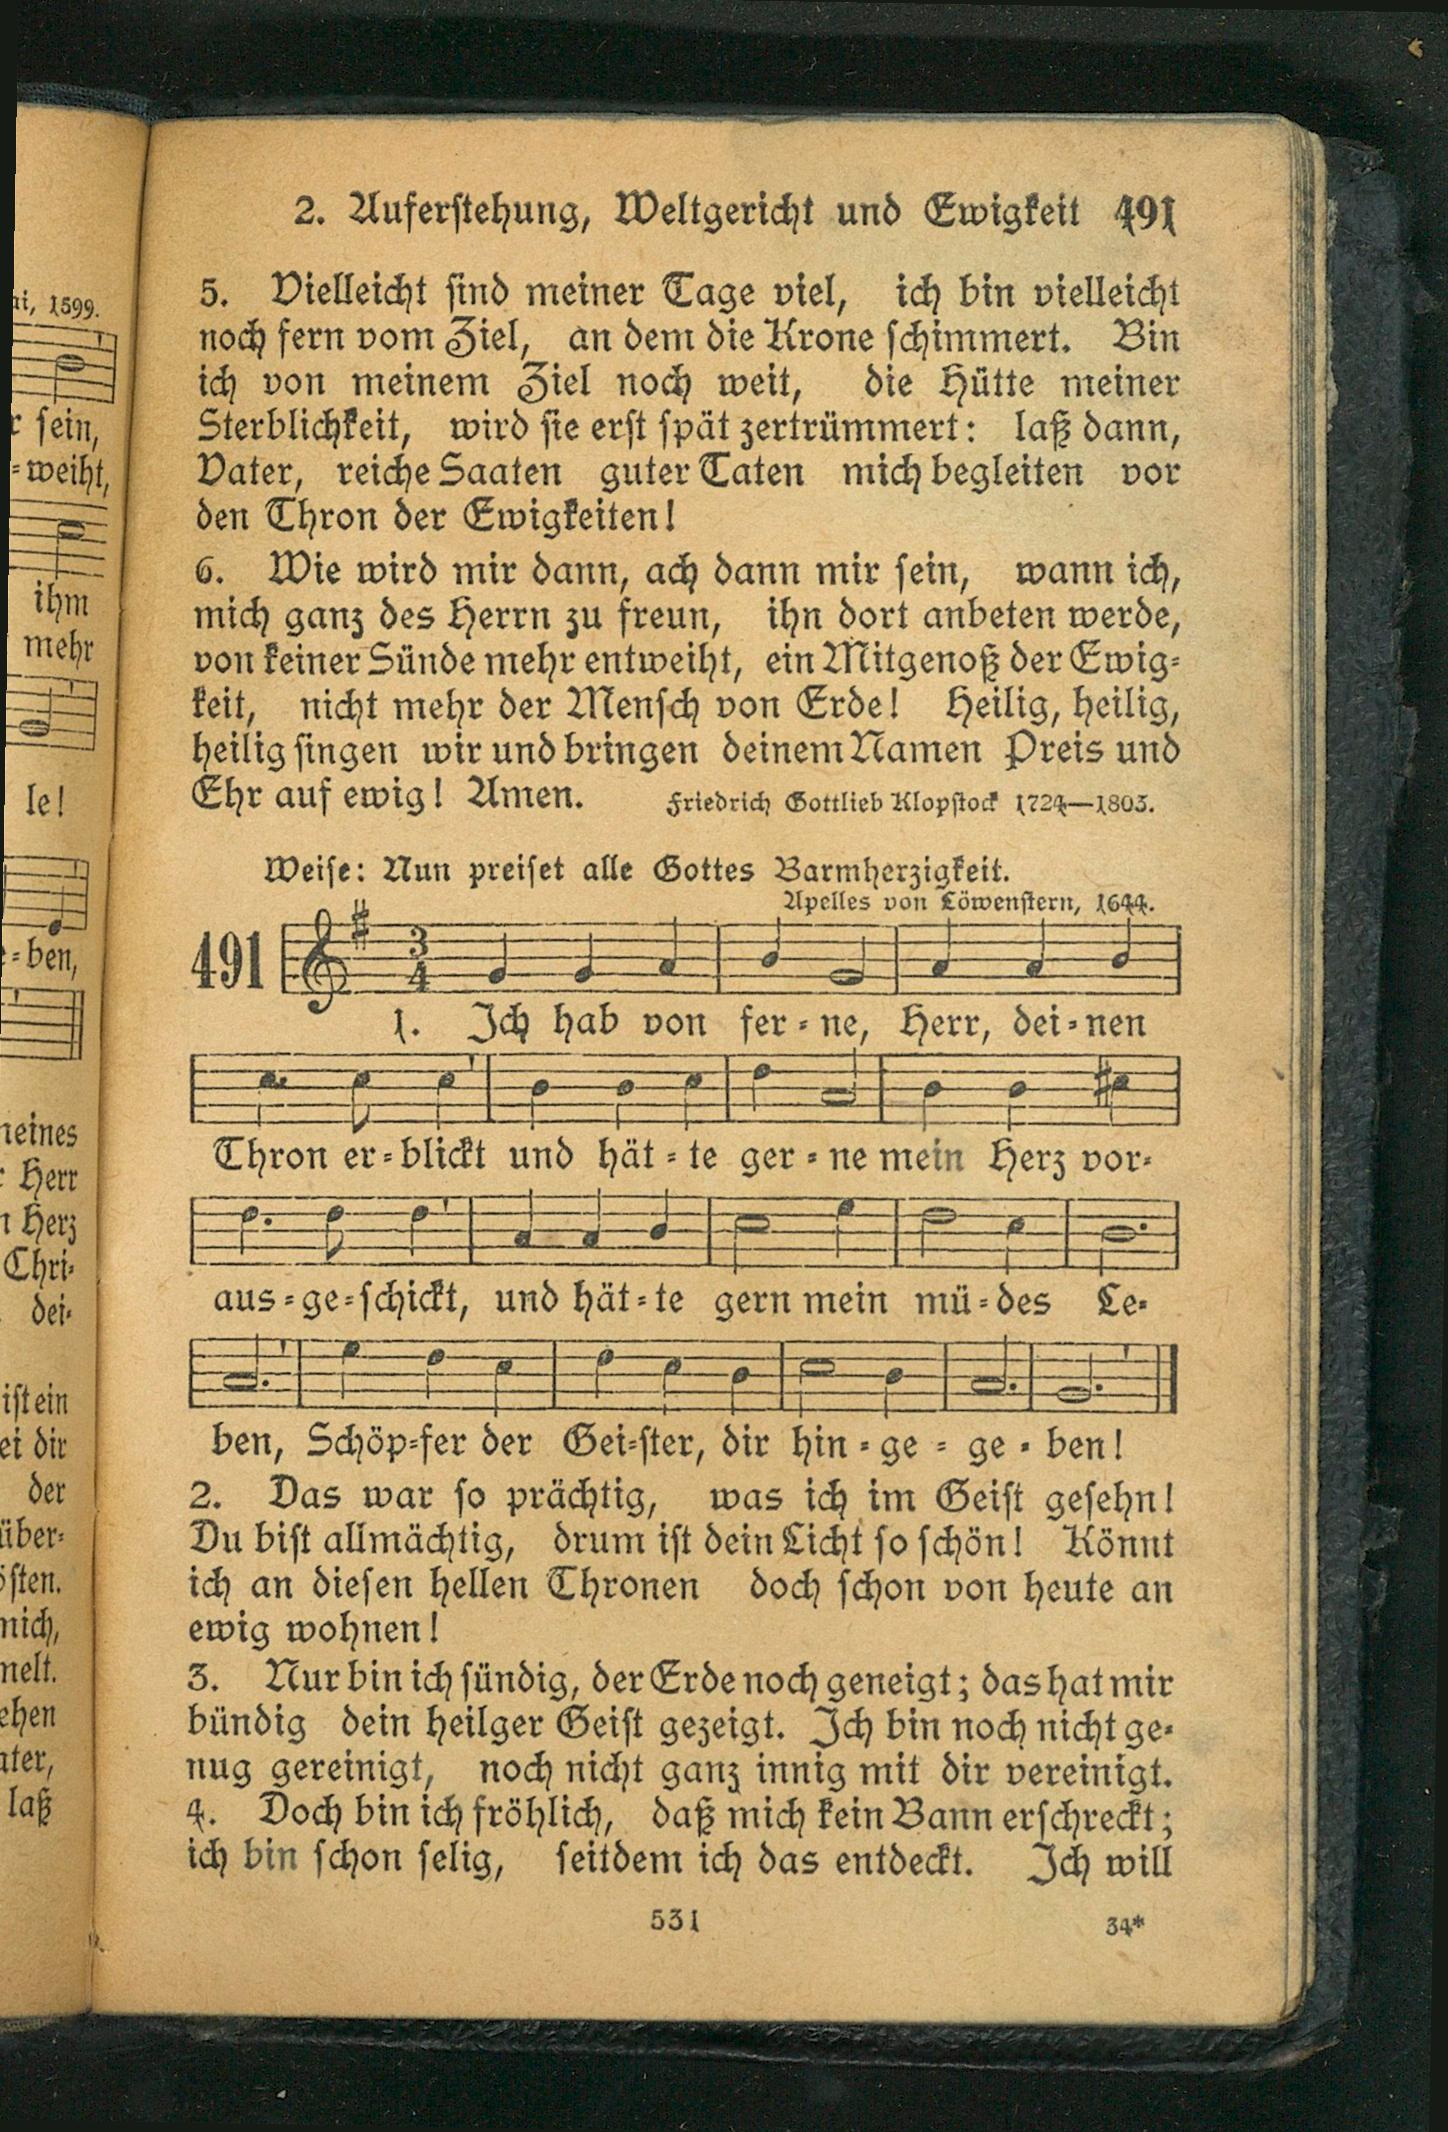 2. Auferstehung, Weltgericht und Ewigkeit 491
5. Vielleicht sind meiner Tage viel, ich bin vielleicht
noch fern vom Ziel, an dem die Krone schimmert. Bin
ich von meinem Ziel noch weit, die Hütte meiner
Sterblichkeit, wird sie erst spät zertrümmert: laß dann,
Vater, reiche Saaten guter Taten mich begleiten vor
den Thron der Ewigkeiten!
6. Wie wird mir dann, ach dann mir sein, wann ich,
mich ganz des Herrn zu freun, ihn dort anbeten werde,
von keiner Sünde mehr entweiht, ein Mitgenoß der Ewig-
keit, nicht mehr der Mensch von Erde! Heilig, heilig,
heilig singen wir und bringen deinem Namen Preis und
Ehr auf ewig! Amen. Friedrich Gottlieb Klopstock 1724—1803.
Weise: Nun preiset alle Gottes Barmherzigkeit.
Apelles von Löwenstern, 1644.
491 3 4
1. Ich hab von fer-ne, Herr, dei-nen
Thron er-blickt und hät-te ger-ne mein Herz vor-
aus-ge-schickt, und hät-te gern mein mü-des Le-
ben, Schöp-fer der Gei-ster, dir hin-ge-ge-ben!
2. Das war so prächtig, was ich im Geist gesehn!
Du bist allmächtig, drum ist dein Licht so schön! Könnt
ich an diesen hellen Thronen doch schon von heute an
ewig wohnen!
3. Nur bin ich sündig, der Erde noch geneigt; das hat mir
bündig dein heilger Geist gezeigt. Ich bin noch nicht ge-
nug gereinigt, noch nicht ganz innig mit dir vereinigt.
4. Doch bin ich fröhlich, daß mich kein Bann erschreckt;
ich bin schon selig, seitdem ich das entdeckt. Ich will
531 34*
1599.
sein,
-weiht,
ihm
mehr
le!
-ben,
Herr
Herz
Chri-
dei-
ist ein
dir
der
über-
laß